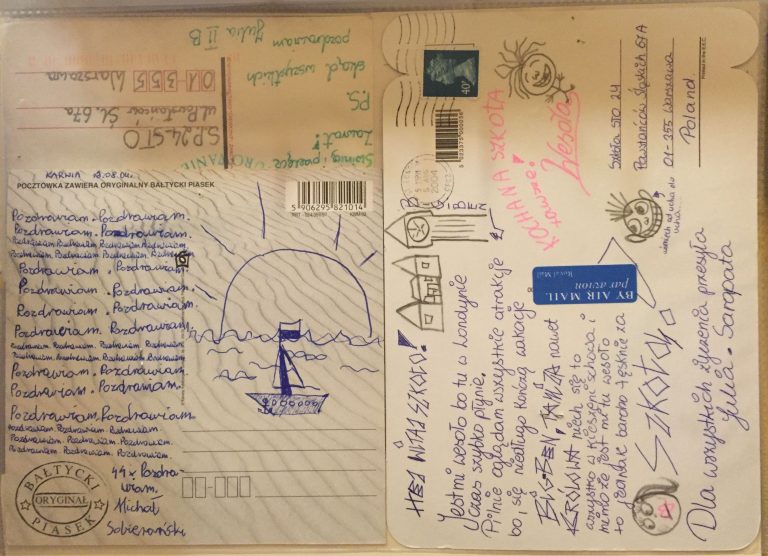 Zawrat!
P.S.
skąd wszystkich
pozdrawiam Julia II B
S.P 24 STO
ul Powstańców Śl. 67a
01355 Warszawa
KARWIA 18.08.04.
POCZTÓWKA ZAWIERA ORYGINALNY BAŁTYCKI PIASEK
5 906295 821014
Pozdrawiam. Pozdrawiam.
Pozdrawiam. Pozdrawiam.
Pozdrawiam Pozdrawiam Pozdrawiam Pozdrawiam.
Pozdrawiam. Pozdrawiam. Pozdrawiam. Pozdrawiam.
Pozdrawiam. Pozdrawiam.
Pozdrawiam. Pozdrawiam.
Pozdrawiam. Pozdrawiam.
Pozdrawiam. Pozdrawiam.
Pozdrawiam. Pozdrawiam. Pozdrawiam. Pozdrawiam.
Pozdrawiam. Pozdrawiam. Pozdrawiam. Pozdrawiam.
Pozdrawiam. Pozdrawiam.
Pozdrawiam. Pozdrawiam.
Pozdrawiam. Pozdrawiam.
Pozdrawiam. Pozdrawiam. Pozdrawiam.
Pozdrawiam. Pozdrawiam. Pozdrawiam.
Pozdrawiam. Pozdrawiam. Pozdrawiam.
44x Pozdra-
wiam.
Michał
BAŁTYCKI
ORYGINAŁ
PIASEK
HEJ WITAJ SZKOŁO!
BIG BEN
Jest mi wesoło bo tu w Londynie
czas szybko płynie.
Pilnie oglądam wszystkie atrakcje
bo, się niedługo kończą wakacje
BIG-BEN, TAMIZA nawet
KRÓLOWA niech się to
wszystko w kieszeni schowa i
mimo że jest mi tu wesoło
to jednak bardzo tęsknię za
SZKOŁĄ
Dla wszystkich życzenia przesyła
Julia. Sarapata
KOCHANA SZKOŁA
zawsze!
Wesoła
BY AIR MAIL
par avion
Royal Mail
uśmiech od ucha do
ucha.
2004
40
Szkoła STO 24
Powstańców Śląskich 67A
01-355 Warszawa
Poland
Printed in the E.E.C.